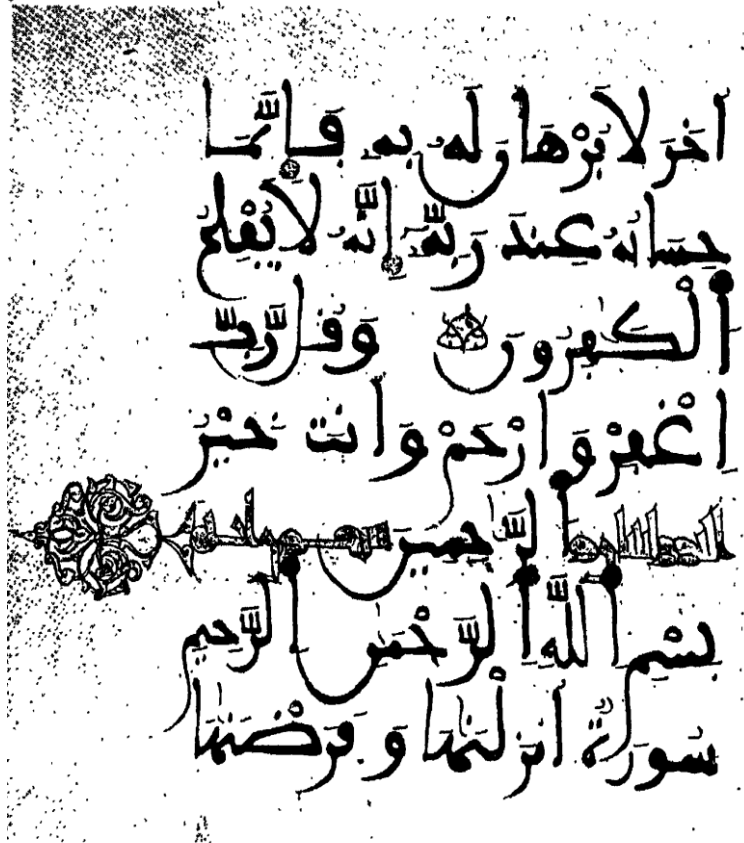 ءَاخَرَ لَا بُرْهَٰنَ لَهُۥ بِهِۦ فَإِنَّمَا
حِسَابُهُۥ عِندَ رَبِّهِۦٓ إِنَّهُۥ لَا يُفْلِحُ
اَ۬لْكَٰفِرُونَ وَقُل رَّبِّ
اِ۪غْفِرْ وَارْحَمْ وَأَنتَ خَيْرُ
اُ۬لرَّٰحِمِينَ
بِسْمِ اِ۬للَّهِ اِ۬لرَّحْمَٰنِ اِ۬لرَّحِيمِ
سُورَةٌ أَنزَلْنَٰهَا وَفَرَضْنَٰهَا